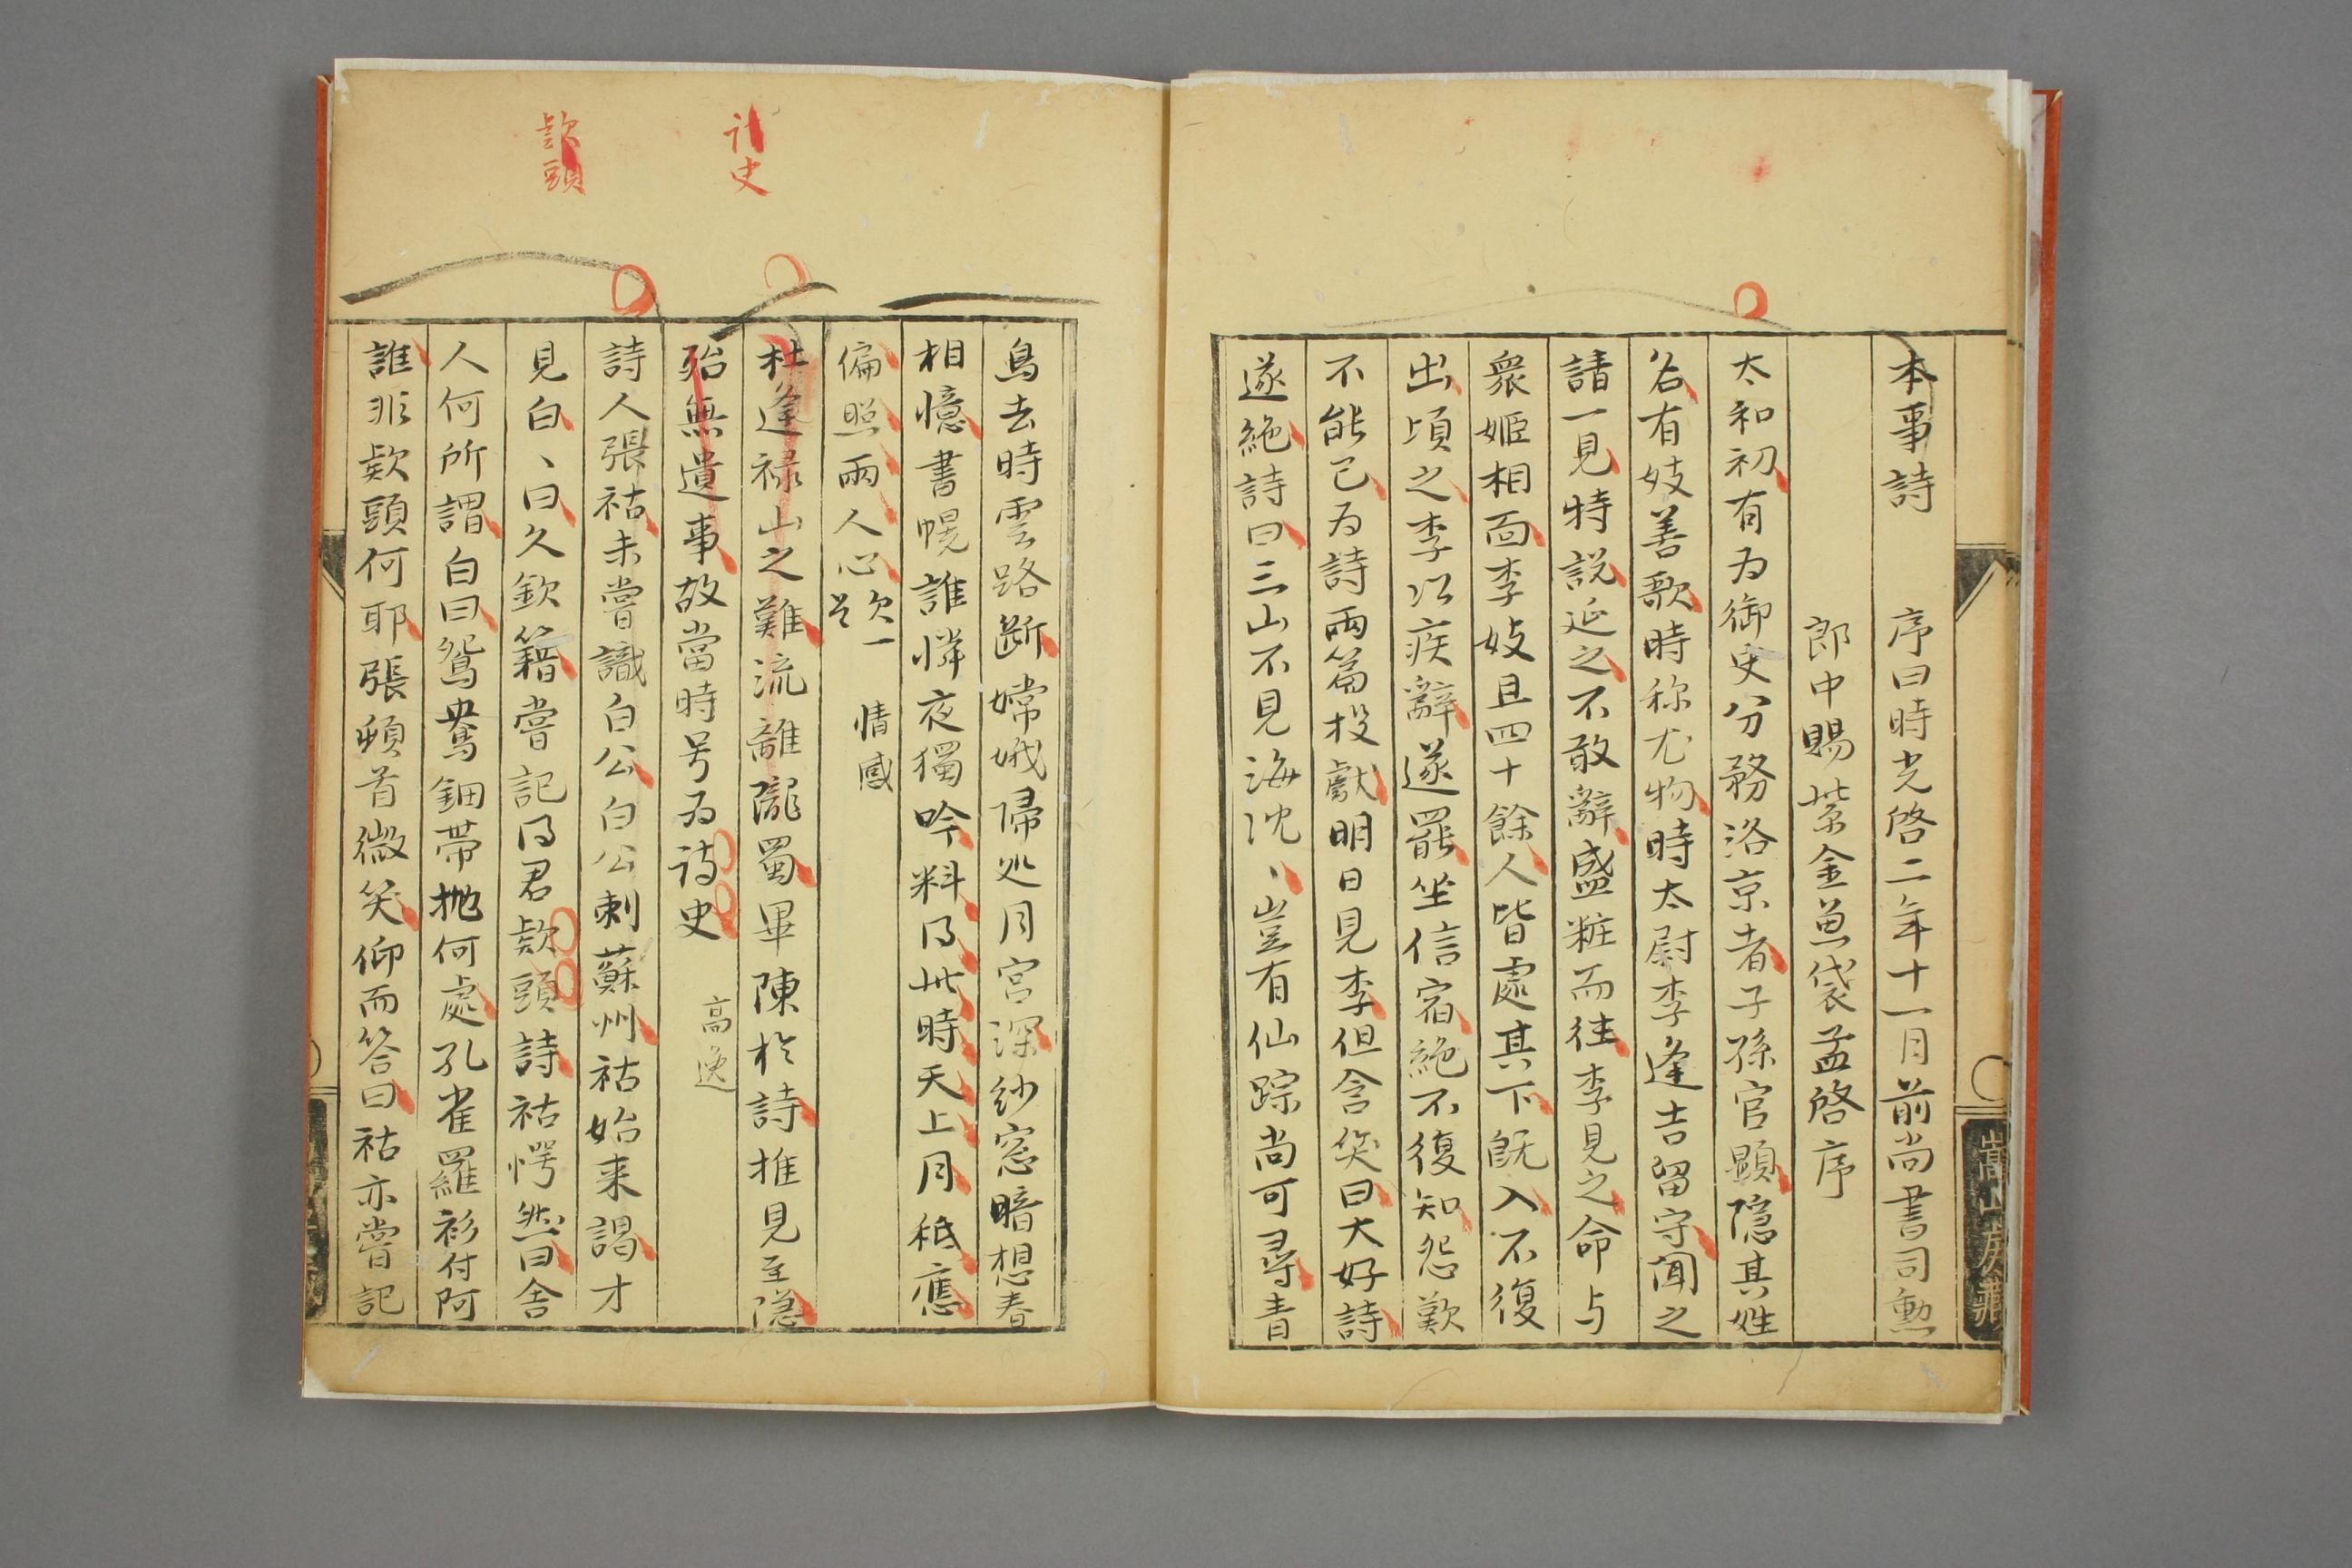 本事詩　序曰時光啓二年十一月前尚書司勲
郎中賜紫金魚袋孟啓序
太和初有为御史分務洛京者子孫官顕隠其姓
名有妓善歌時称尤物時太尉李逢吉留守聞之
請一見特説延之不敢辭盛粧而往李見之命与
衆姬相面李妓且四十餘人皆處其下既入不復
出頃之李以疾辭遂罷坐信宿絶不復知怨歎
不能已为詩兩篇投献明日見李但含笑曰大好詩
遂絶詩曰三山不見海沈、豈有仙踪尚可尋青
鳥去時雲路断嫦娥帰处月宮深紗窓暗想春
相憶書幌誰憐夜獨吟料得此時天上月秖應
偏照兩人心欠一首　情感
杜逢禄山之難流離隴蜀畢陳於詩推見至隠
殆無遺事故當時号为詩史　高逸
詩人張祜未嘗識白公白公刺蘇州祜始来謁才
見白、曰久欽籍嘗記得君款頭詩祜愕然曰舍
人何所謂白曰鴛鴦鈿帯抛何處孔雀羅衫付阿
誰非款頭何耶張頓首微笑仰而答曰祜亦嘗記
詩史
款頭
嵩山房藏